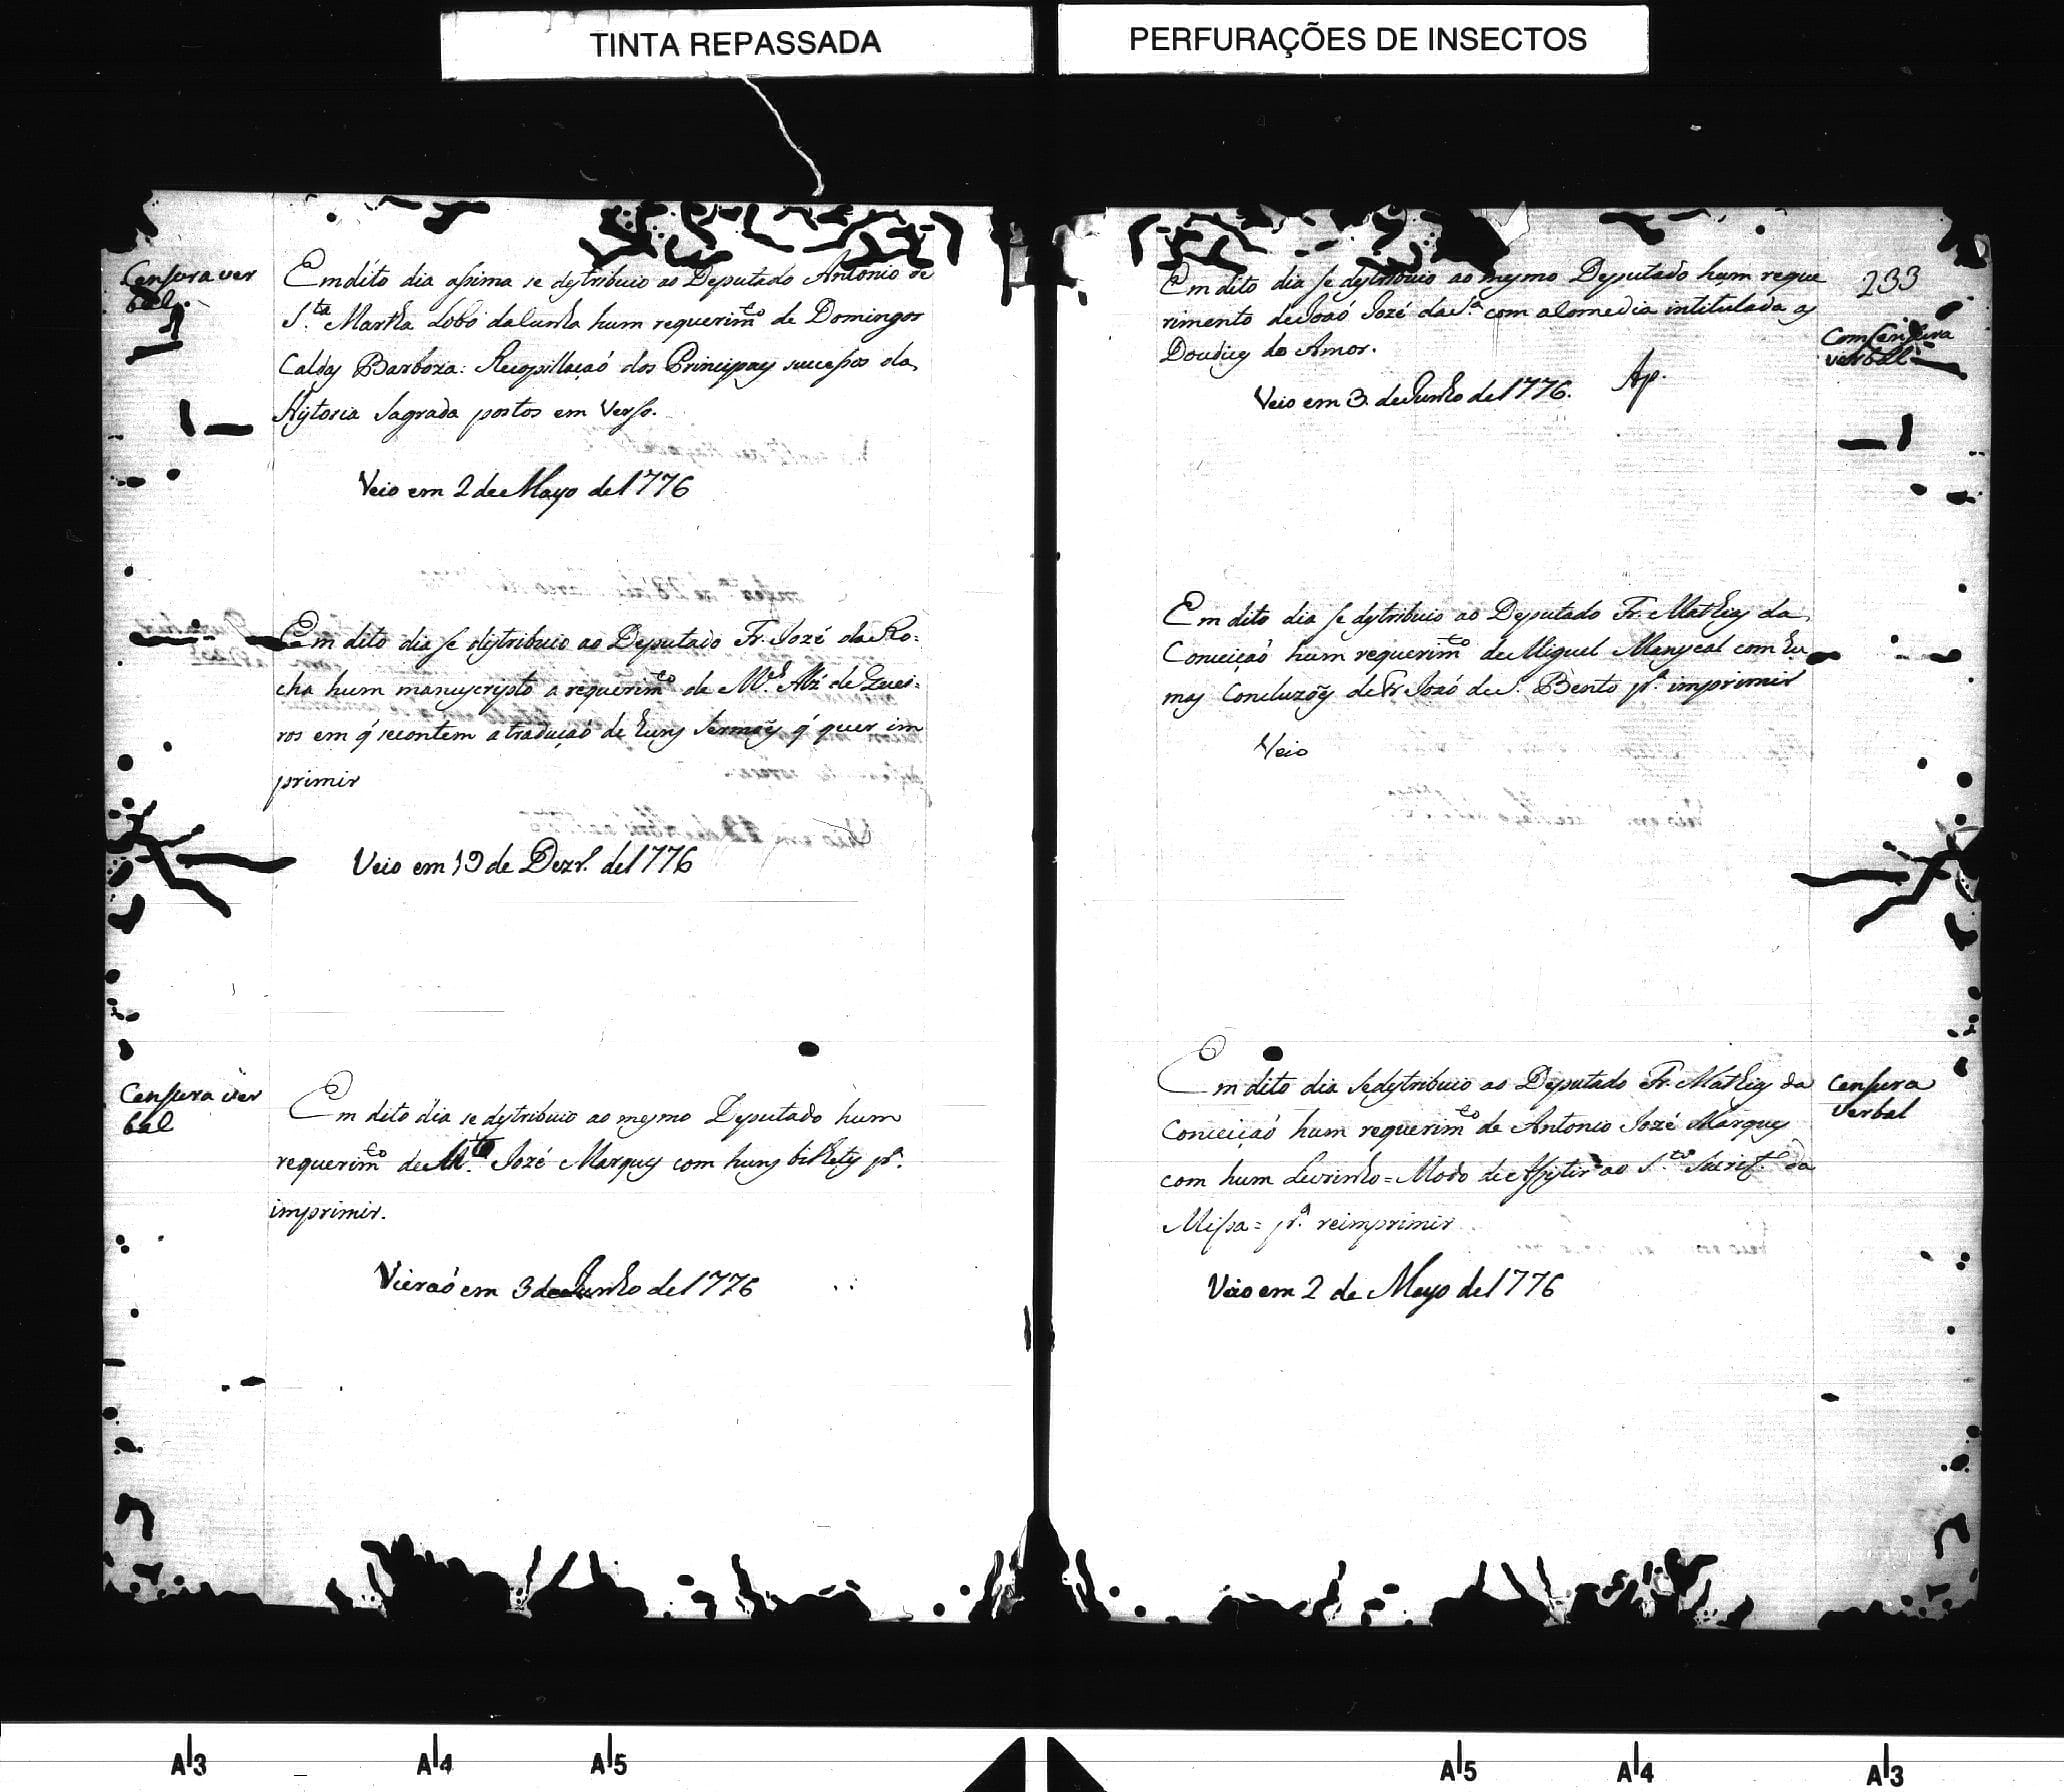 TINTA REPASSADA
PERFURAÇÕES DE INSECTOS
Censura ver
bal
Em dito dia assima se destribuio ao Deputado Antonio de
S.ta Martha Lobo da Cunha hum requerim.to de Domingos
Caldas Barboza: Recopillaçaó dos Principaes sucessos da
Historia Sagrada postos em Verso.
Veio em 2 de Mayo de 1776
Em dito dia se destribuio ao Deputado Fr. Jozé da Ro=
cha hum manuscripto a requerim.to de M.el Alz de Quei=
ros em q́ se contem a traduçaó de huns Sermoẽs q́ quer im
primir
Veio em 19 de Dezr.º de 1776
Censura ver
bal
Em dito dia se destribuio ao mesmo Deputado hum
requerim.to de Jozé Marques com huns bilhetes p.ª
imprimir.
Vieraó em 3 de Junho de 1776
233
Em dito dia se destribuio ao mesmo Deputado hum reque
rimento de Joaó Jozé da S.ª com a Comedia intitulada as
Doudices do Amor.
Com Censura
verbal
Ap.
Veio em 3 de Junho de 1776.
Em dito dia se destribuio ao Deputado Fr. Mathias da
Conceiçaó hum requerim.to de Miguel Manescal com hu
mas Concluzoẽs de Fr Joaó de S. Bento p.ª imprimir
Veio
Em dito dia se destribuio ao Deputado Fr. Mathias da
Censura
verbal
Conceiçaó hum requerim.to de Antonio Jozé Marques
com hum Livrinho = Modo de Assistir ao S.to Sacrif.º da
Missa = p.ª reimprimir
Veio em 2 de Mayo de 1776
A3
A4
A5
A5
A4
A3